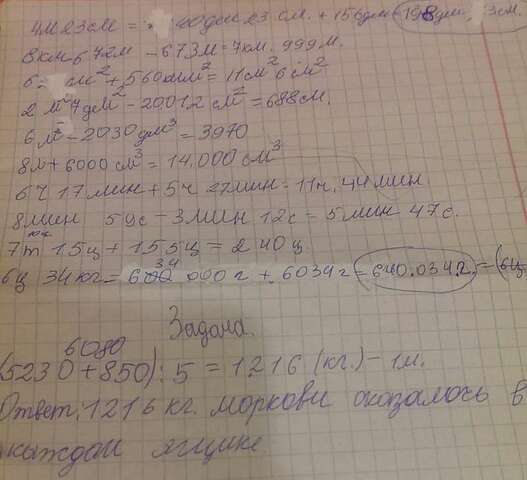 4м 23см = 40дм 23 см. + 156дм = 198дм, 3см.
8км 672м - 673м = 7км. 999м.
см² + 560мм² = 11см² 6см²
2 м² 7дм² - 20012 см² = 688см.
6м³ - 2030 дм³ = 3970
8л + 6000см³ = 14.000см³
6ч 17мин + 5ч 27мин = 11ч. 44мин.
8мин 59с - 3мин 12с = 5мин 47с.
7т 15ц + 155ц = 240ц.
6ц 34кг = 634 000г + 6034г = 640.034г. = (6ц
Задача.
6080
(5230+850) : 5 = 1216 (кг.) - 1м.
Ответ: 1216 кг. моркови оказалось в
каждом ящике